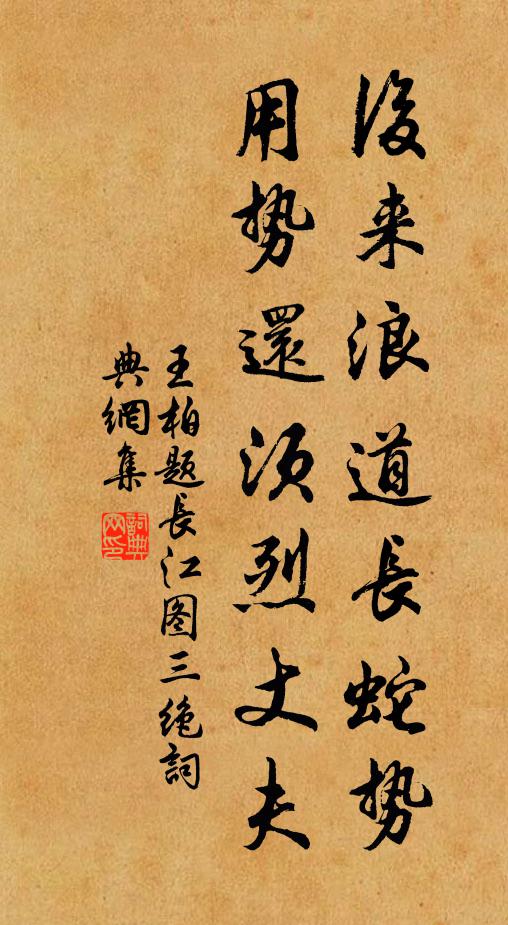 後来浪道長蛇势
用势還须烈丈夫
王柏题長江图三绝詞
典網集
詞典网印